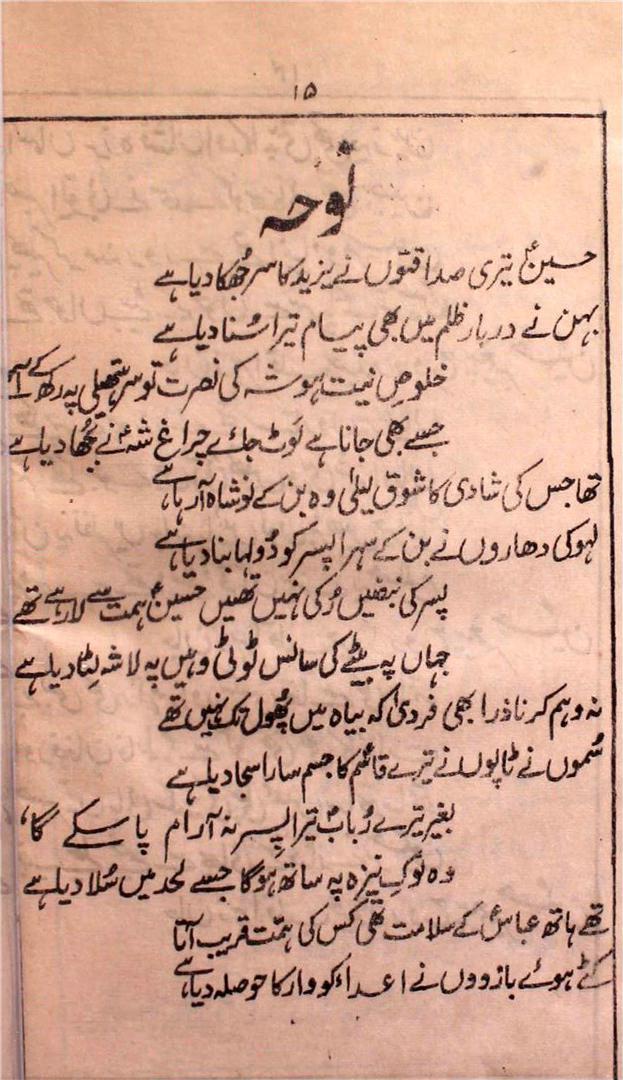 ۱۵
نوحہ
حسینؑ تیری صداقتوں نے یزید کا سر جھکا دیا ہے
بہن نے دربارِ ظلم میں بھی پیام تیرا سُنا دیا ہے
خلوصِ نیت ہو شہ کی نصرت تو سر ہتھیلی پہ رکھ کے آئے
جسے بھی جانا ہے لَوٹ جائے چراغ شہؑ نے بُجھا دیا ہے
تھا جس کی شادی کا شوق لیلیٰ وہ بن کے نوشاہ آ رہا ہے
لہو کی دھاروں نے بن کے سہرا پسر کو دُولہا بنا دیا ہے
پسر کی نبضیں رُکی نہیں تھیں حسینؑ ہمت سے لا رہے تھے
جہاں پہ بیٹے کی سانس ٹوٹی وہیں پہ لاشہ لِٹا دیا ہے
نہ وہم کرنا ذرا بھی فرویٰ کہ بیاہ میں پھُول تک نہیں تھے
سُموں نے ٹاپوں نے تیرے قاسم کا جسم سارا سجا دیا ہے
بغیر تیرے رُبابؑ تیرا پسر نہ آرام پا سکے گا،
وہ نوکِ نیزہ پہ ساتھ ہوگا جسے لحد میں سُلا دیا ہے
تھے ہاتھ عباسؑ کے سلامت تھی کس کی ہمّت قریب آتا
کٹے ہوئے بازووں نے اعداء کو وار کا حوصلہ دیا ہے